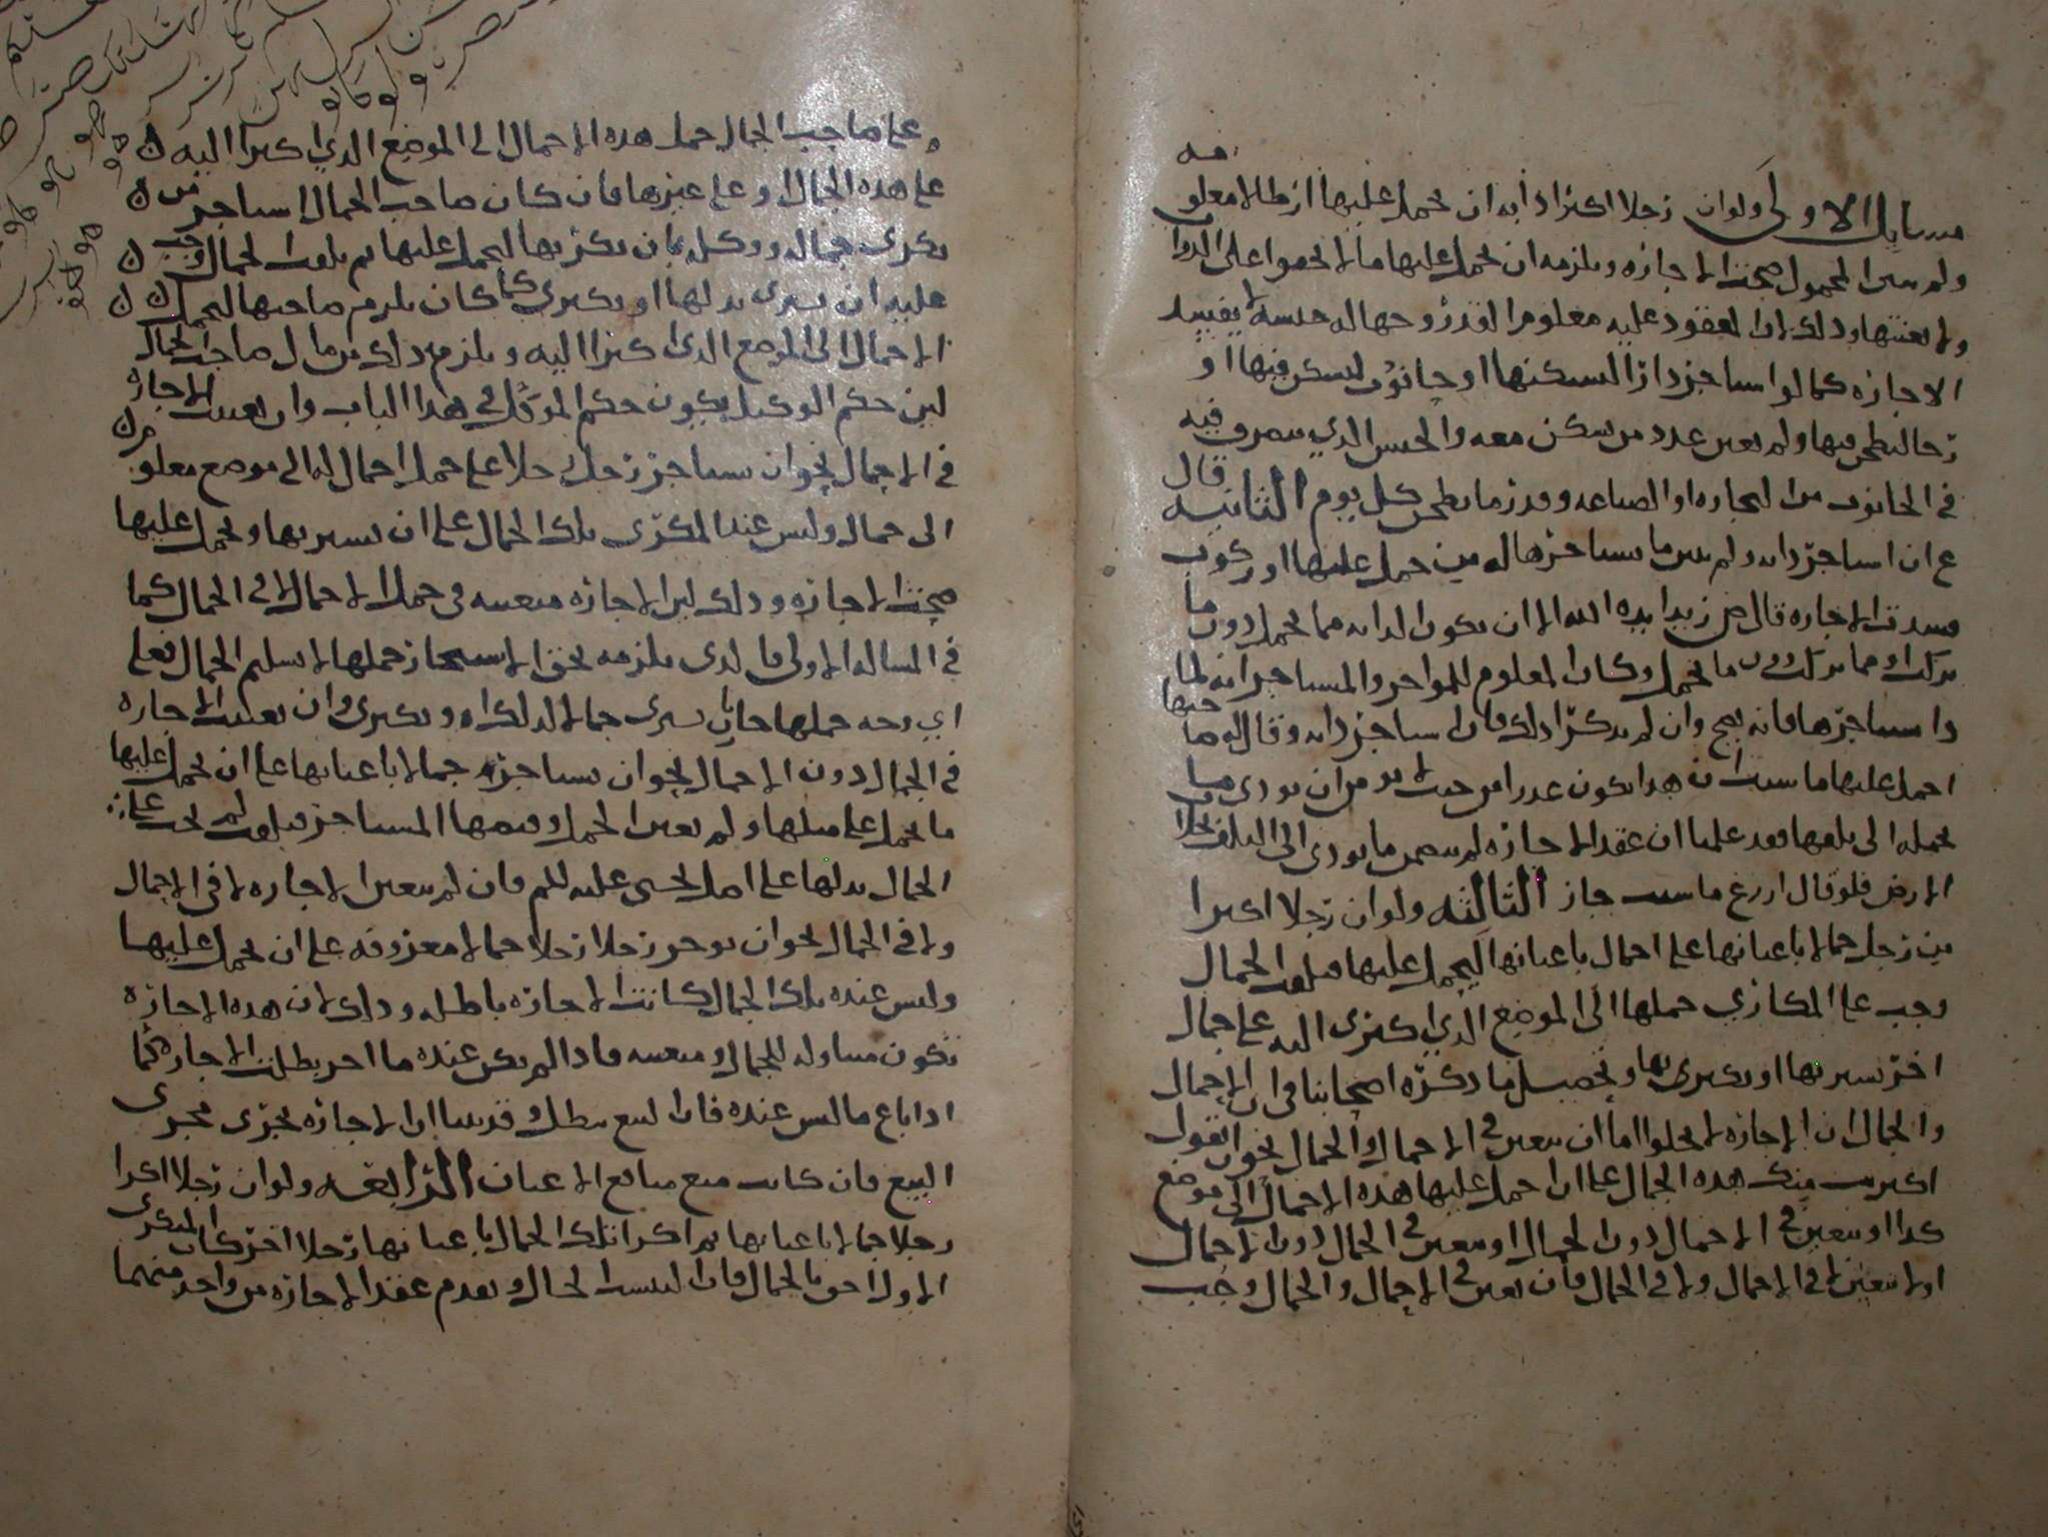 فيه
مسايل الاولى ولو ان رجلا اكترا دابه ان يحمل عليها ارطالا معلومه
ولم يبين المحمول صحت الاجاره ويلزمه ان يحمل عليها ما لا يحفوا على الدواب
ولا يعنتها وذلك ان المعقود عليه معلوم القدر وجهاله جنسه لا يفسد
الاجاره كما لو استاجر دارا ليسكنها او حانوت ليسكن فيها او
رحا ليطحن فيها ولم يعين عدد من يسكن معه والجنس الذي يتصرف فيه
في الحانوت من التجاره او الصناعه وقدر ما يطحن كل يوم الثانيه قال
ع ان استاجر دابه ولم يبين ما يستاجرها له من حمل عليها او ركوب
فسدت الاجاره قال ض زيد ايده الله الا ان يكون الدابه مما يحمل دون ما
يركب او مما يركب دون ما يحمل وكان المعلوم للمواجر والمستاجر انه لما
ذا استاجرها فانه يصح وان لم يذكرا ذلك فان استاجر دابه وقال صاحبها
احمل عليها ما شئت ان هذا يكون غدرا من حيث لا يومن ان يودى ما
يحمله الى تلفها فقد علمنا ان عقد الاجاره لم يتضمن ما يودى الى التلف بخلاف
الارض فلو قال ازرع ما شيت جاز الثالثه ولو ان رجلا اكترا
من رجل جمالا باعيانها على احمال باعيانها ليحمل عليها فتلفت الجمال
وجب على المكاري حملها الى الموضع الذي اكترى اليه على جمال
اخر يشتريها او يكتري بها وتحصيل ما ذكره اصحابنا في ان الاحمال
والجمال ان الاجاره لا يخلوا اما ان يتعين في الاحمال والجمال نحو ان يقول
اكتريت منك هذه الجمال على ان احمل عليها هذه الاحمال الى موضع
كذا او يتعين في الاحمال دون الجمال او يتعين في الجمال دون الاحمال
او لا يتعين لا في الاحمال ولا في الجمال فان تعين في الاحمال والجمال وجب
على صاحب الجمال حمل هذه الاحمال الى الموضع الذي اكترا اليه
على هذه الجمال او على غيرها فان كان صاحب الجمال استاجر من
يكرى جماله ووكله بان يكريها ليحمل عليها ثم تلفت الجمال وجب
عليه ان يشتري بدلها او يكتري كما كان يلزم صاحبها ليحمل
الاحمال الى الموضع الذي اكترا اليه ويلزم ذلك من مال صاحب الجمال
لين حكم الوكيل يكون حكم الموكل في هذا الباب وان تعينت الاجاره
في الاحمال نحو ان يستاجر رجل رجلا على حمل احمال له الى موضع معلوم
الى جمال وليس عند المكرى تلك الجمال على ان يشتريها ويحمل عليها
صحت الاجاره وذلك لين الاجاره متعينه في حمل الاحمال لا في الجمال كما
في المساله الاولى فالذي يلزمه بحق الاستيجار حملها لا تسليم الجمال فعلى
اي وجه حملها جاز بان يشتري جمالا لذلك او يكتري وان تعلقت الاجاره
في الجمال دون الاحمال نحو ان يستاجر جمالا باعيانها على ان يحمل عليها
ما يحمل على مثلها ولم يعين الحمل وقبضها المستاجر فتلفت لم يجب على
الجمال بدلها على اصل يحيى عليه السلم فان لم يتعين الاجاره لا في الاحمال
ولا في الجمال نحو ان يوجر رجلا رجلا جمالا معروفه على ان يحمل عليها
وليس عنده تلك الجمال كانت الاجاره باطله وذلك ان هذه الاجاره
تكون متناوله للجمال ومتعينه فاذا لم يكن عنده ما اجر بطلت الاجاره كما
اذا باع ما ليس عنده فان البيع يبطل وقد بينا ان الاجاره تجرى مجرى
البيع فان كانت بيع منافع الاعيان الرابعه ولو ان رجلا اكرا
رجلا جمالا باعيانها ثم اكرا تلك الجمال باعيانها رجلا اخر كان المكترى
الاول احق بالجمال فان التبست الحال وتقدم عقد الاجاره من واحد منهما